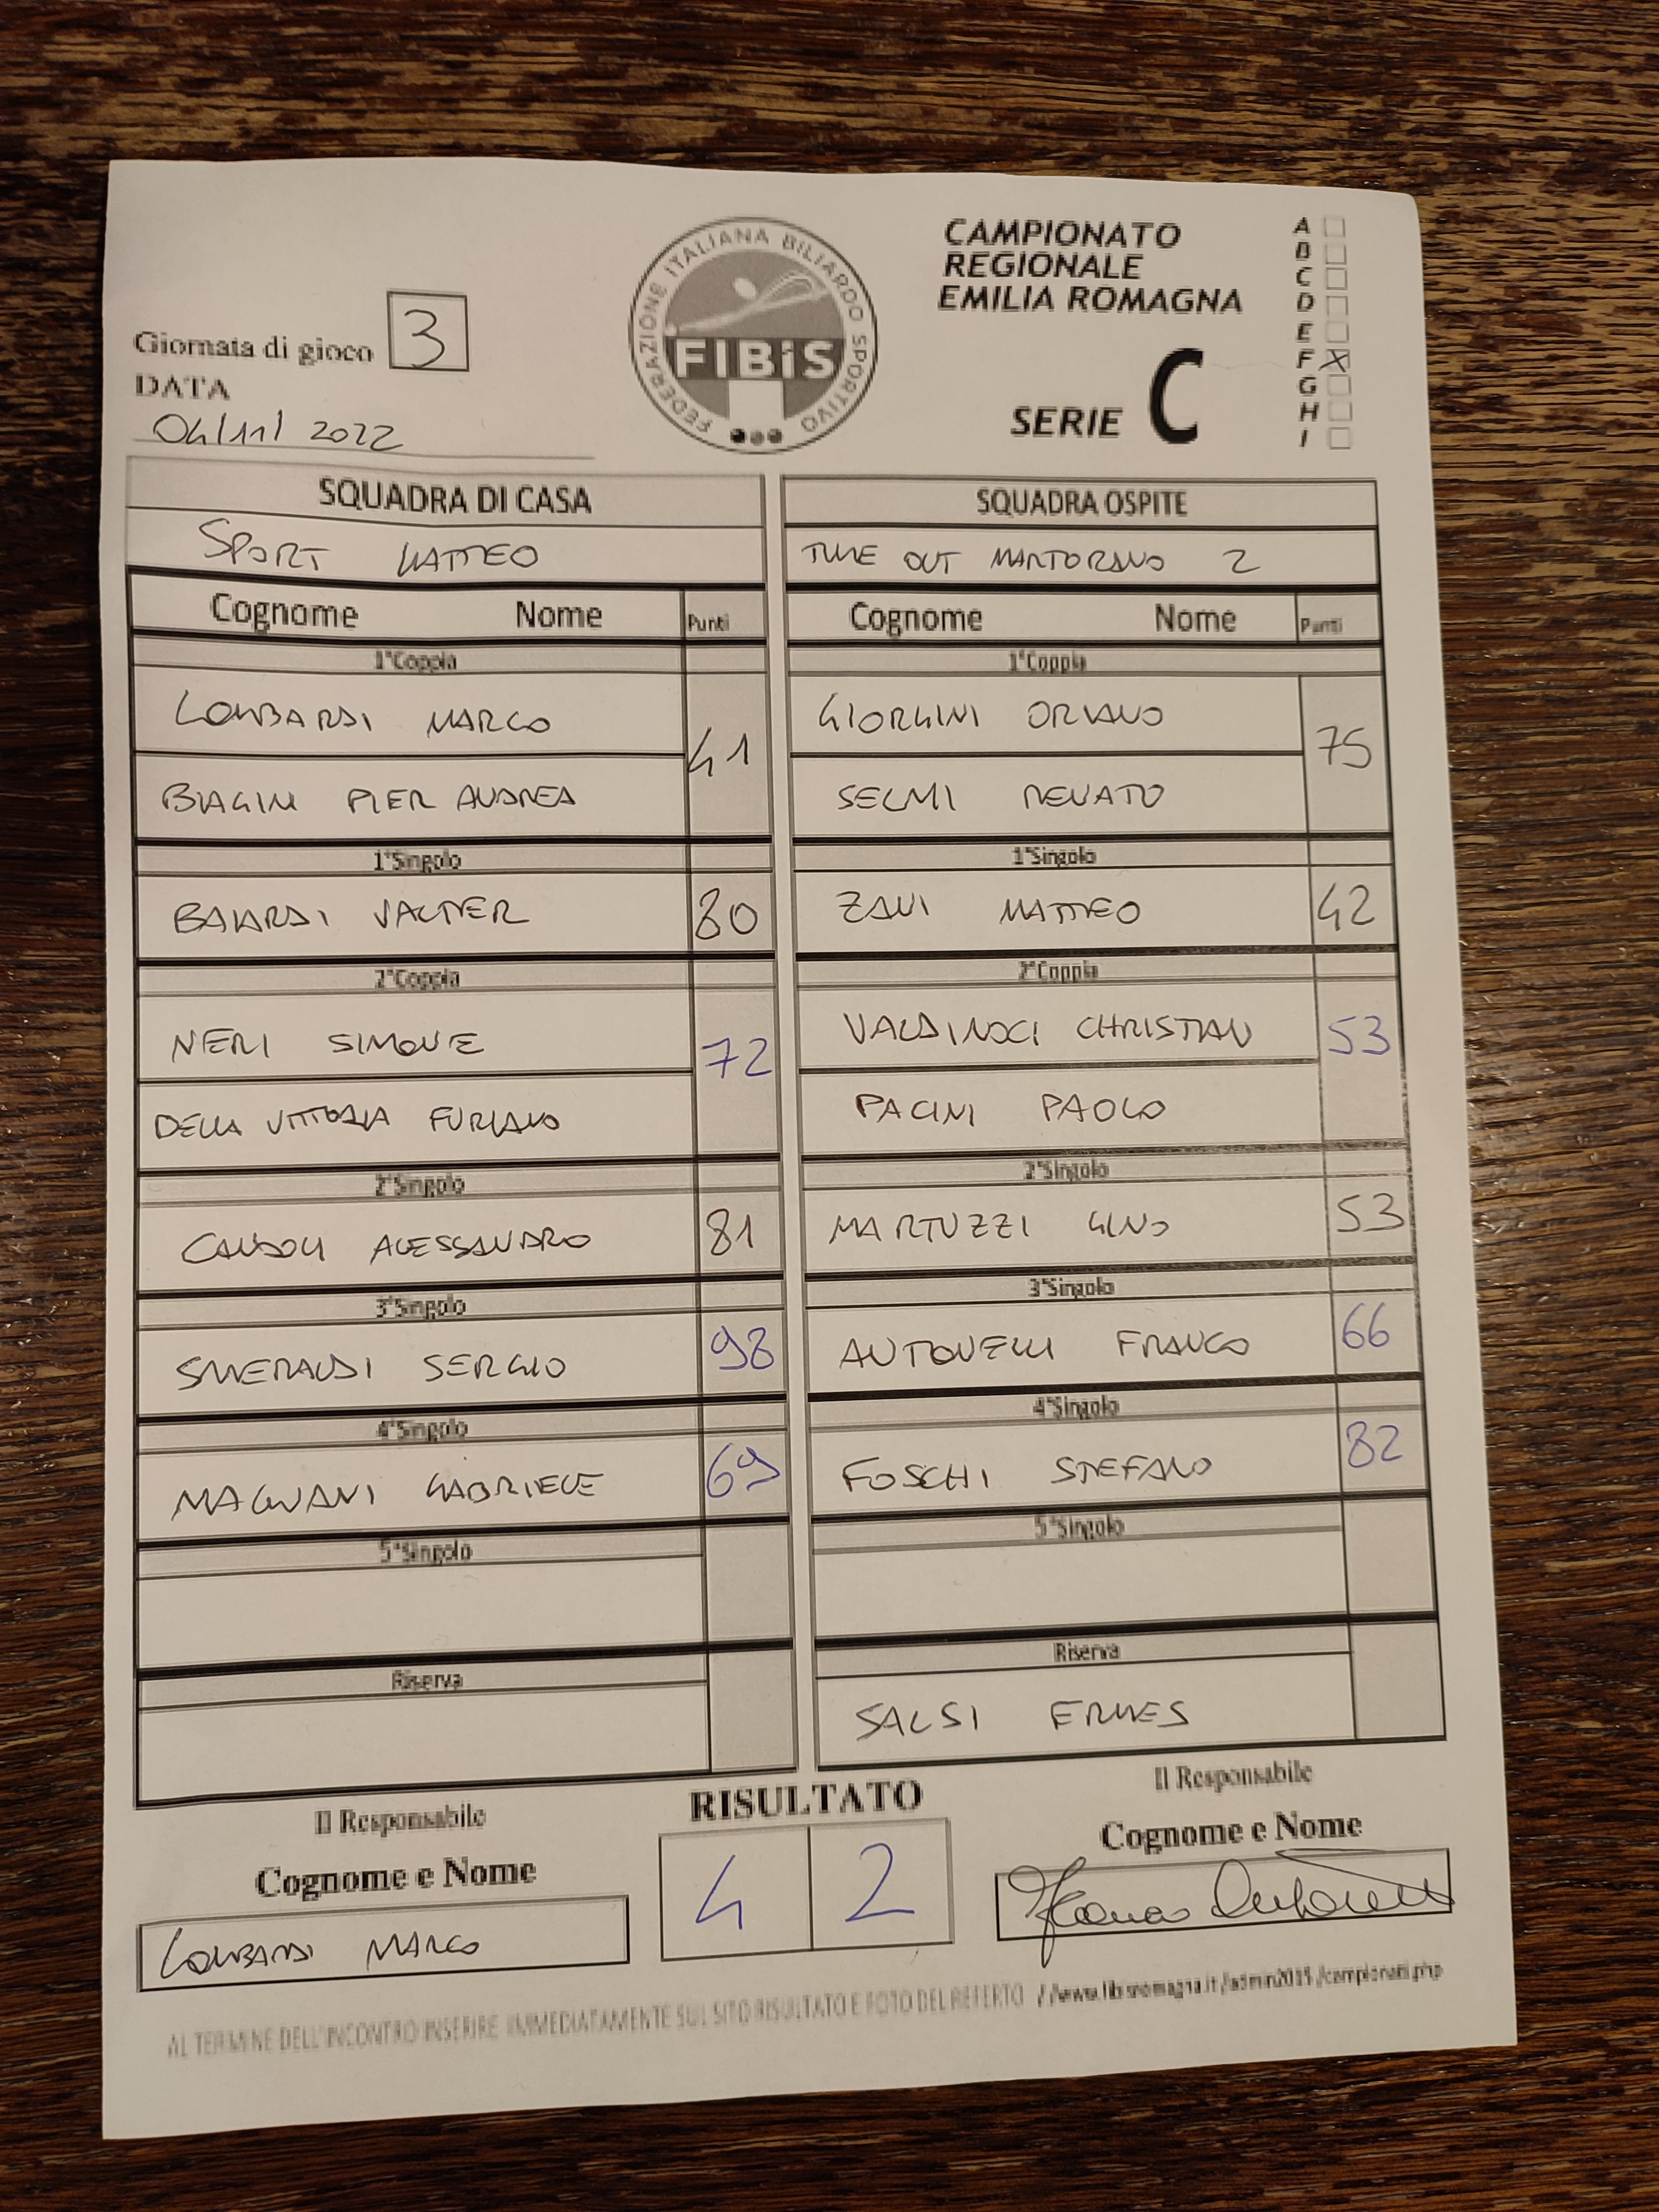 CAMPIONATO
REGIONALE
EMILIA ROMAGNA
SERIE C
A
B
C
D
E
F X
G
H
I
FEDERAZIONE ITALIANA BILIARDO SPORTIVO
FIBiS
Giornata di gioco 3
DATA
04/11/2022
SQUADRA DI CASA
SPORT MATTEO
Cognome Nome Punti
1°Coppia
LOMBARDI MARCO
41
BIAGINI PIER ANDREA
1°Singolo
BAIARDI VALTER 80
2°Coppia
NERI SIMONE
72
DELLA VITTORIA FURIANO
2°Singolo
CANDOLI ALESSANDRO 81
3°Singolo
SMERALDI SERGIO 98
4°Singolo
MAGNANI GABRIELE 69
5°Singolo
Riserva
SQUADRA OSPITE
TIME OUT MARTORANO 2
Cognome Nome Punti
1°Coppia
GIORGINI ORIANO
75
SELMI RENATO
1°Singolo
ZANI MATTEO 42
2°Coppia
VALDINOCI CHRISTIAN
53
PACINI PAOLO
2°Singolo
MARTUZZI GINO 53
3°Singolo
ANTONELLI FRANCO 66
4°Singolo
FOSCHI STEFANO 82
5°Singolo
Riserva
SALSI ERMES
Il Responsabile
Cognome e Nome
LOMBARDI MARCO
RISULTATO
4 2
Il Responsabile
Cognome e Nome
Franco Antonelli
AL TERMINE DELL'INCONTRO INSERIRE IMMEDIATAMENTE SUL SITO RISULTATO E FOTO DEL REFERTO //www.fibisromagna.it/admin2015/campionati.php